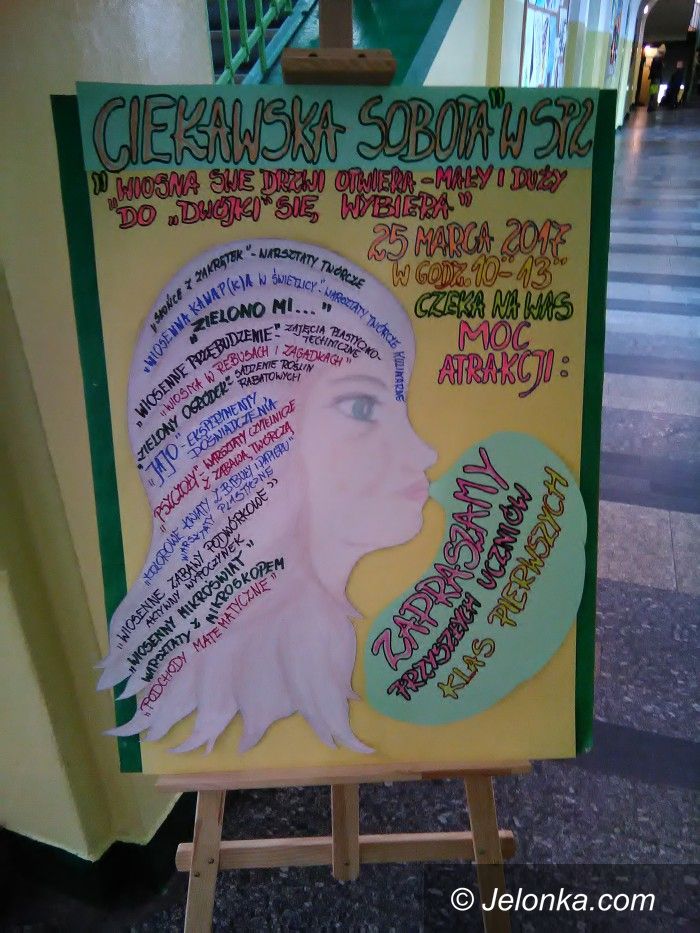 CIEKAWSKA SOBOTA" W SP2
"WIOSNA SWE DRZWI OTWIERA - MAŁY I DUŻY
DO „DWÓJKI" SIĘ WYBIERA"
25 MARCA 2017
W GODZ. 10-13
CZEKA NA WAS
MOC
ATRAKCJI:
"SŁOŃCE Z ZAKRĘTEK" - WARSZTATY TWÓRCZE
"WIOSENNA KANAP(K)A W ŚWIETLICY" - WARSZTATY TWÓRCZO KULINARNE
"ZIELONO MI..."
"WIOSENNE PRZEBUDZENIE" - ZAJĘCIA PLASTYCZNO-
TECHNICZNE
"WIOSNA W REBUSACH I ZAGADKACH"
"ZIELONY OGRÓDEK" SADZENIE ROŚLIN
RABATOWYCH
"JAJO" - EKSPERYMENTY
DOŚWIADCZENIA
"PSZCZOŁY" - WARSZTATY CZYTELNICZE
Z ZABAWĄ TWÓRCZĄ
KWIATY Z BIBUŁY I PAPIERU"
WARSZTATY PLASTYCZNE
"WIOSENNE ZABAWY PODWÓRKOWE"
AKTYWNY WYPOCZYNEK
"WIOSENNY MIKROŚWIAT"
WARSZTATY Z MIKROSKOPEM
"PODCHODY MATEMATYCZNE"
ZAPRASZAMY
PRZYSZŁYCH UCZNIÓW
KLAS PIERWSZYCH
© Jelonka.com